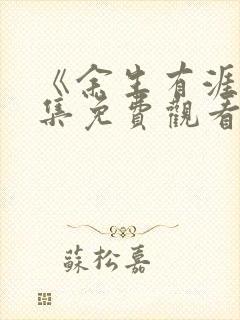 《余生有涯
集免費觀看
蘇松嘉